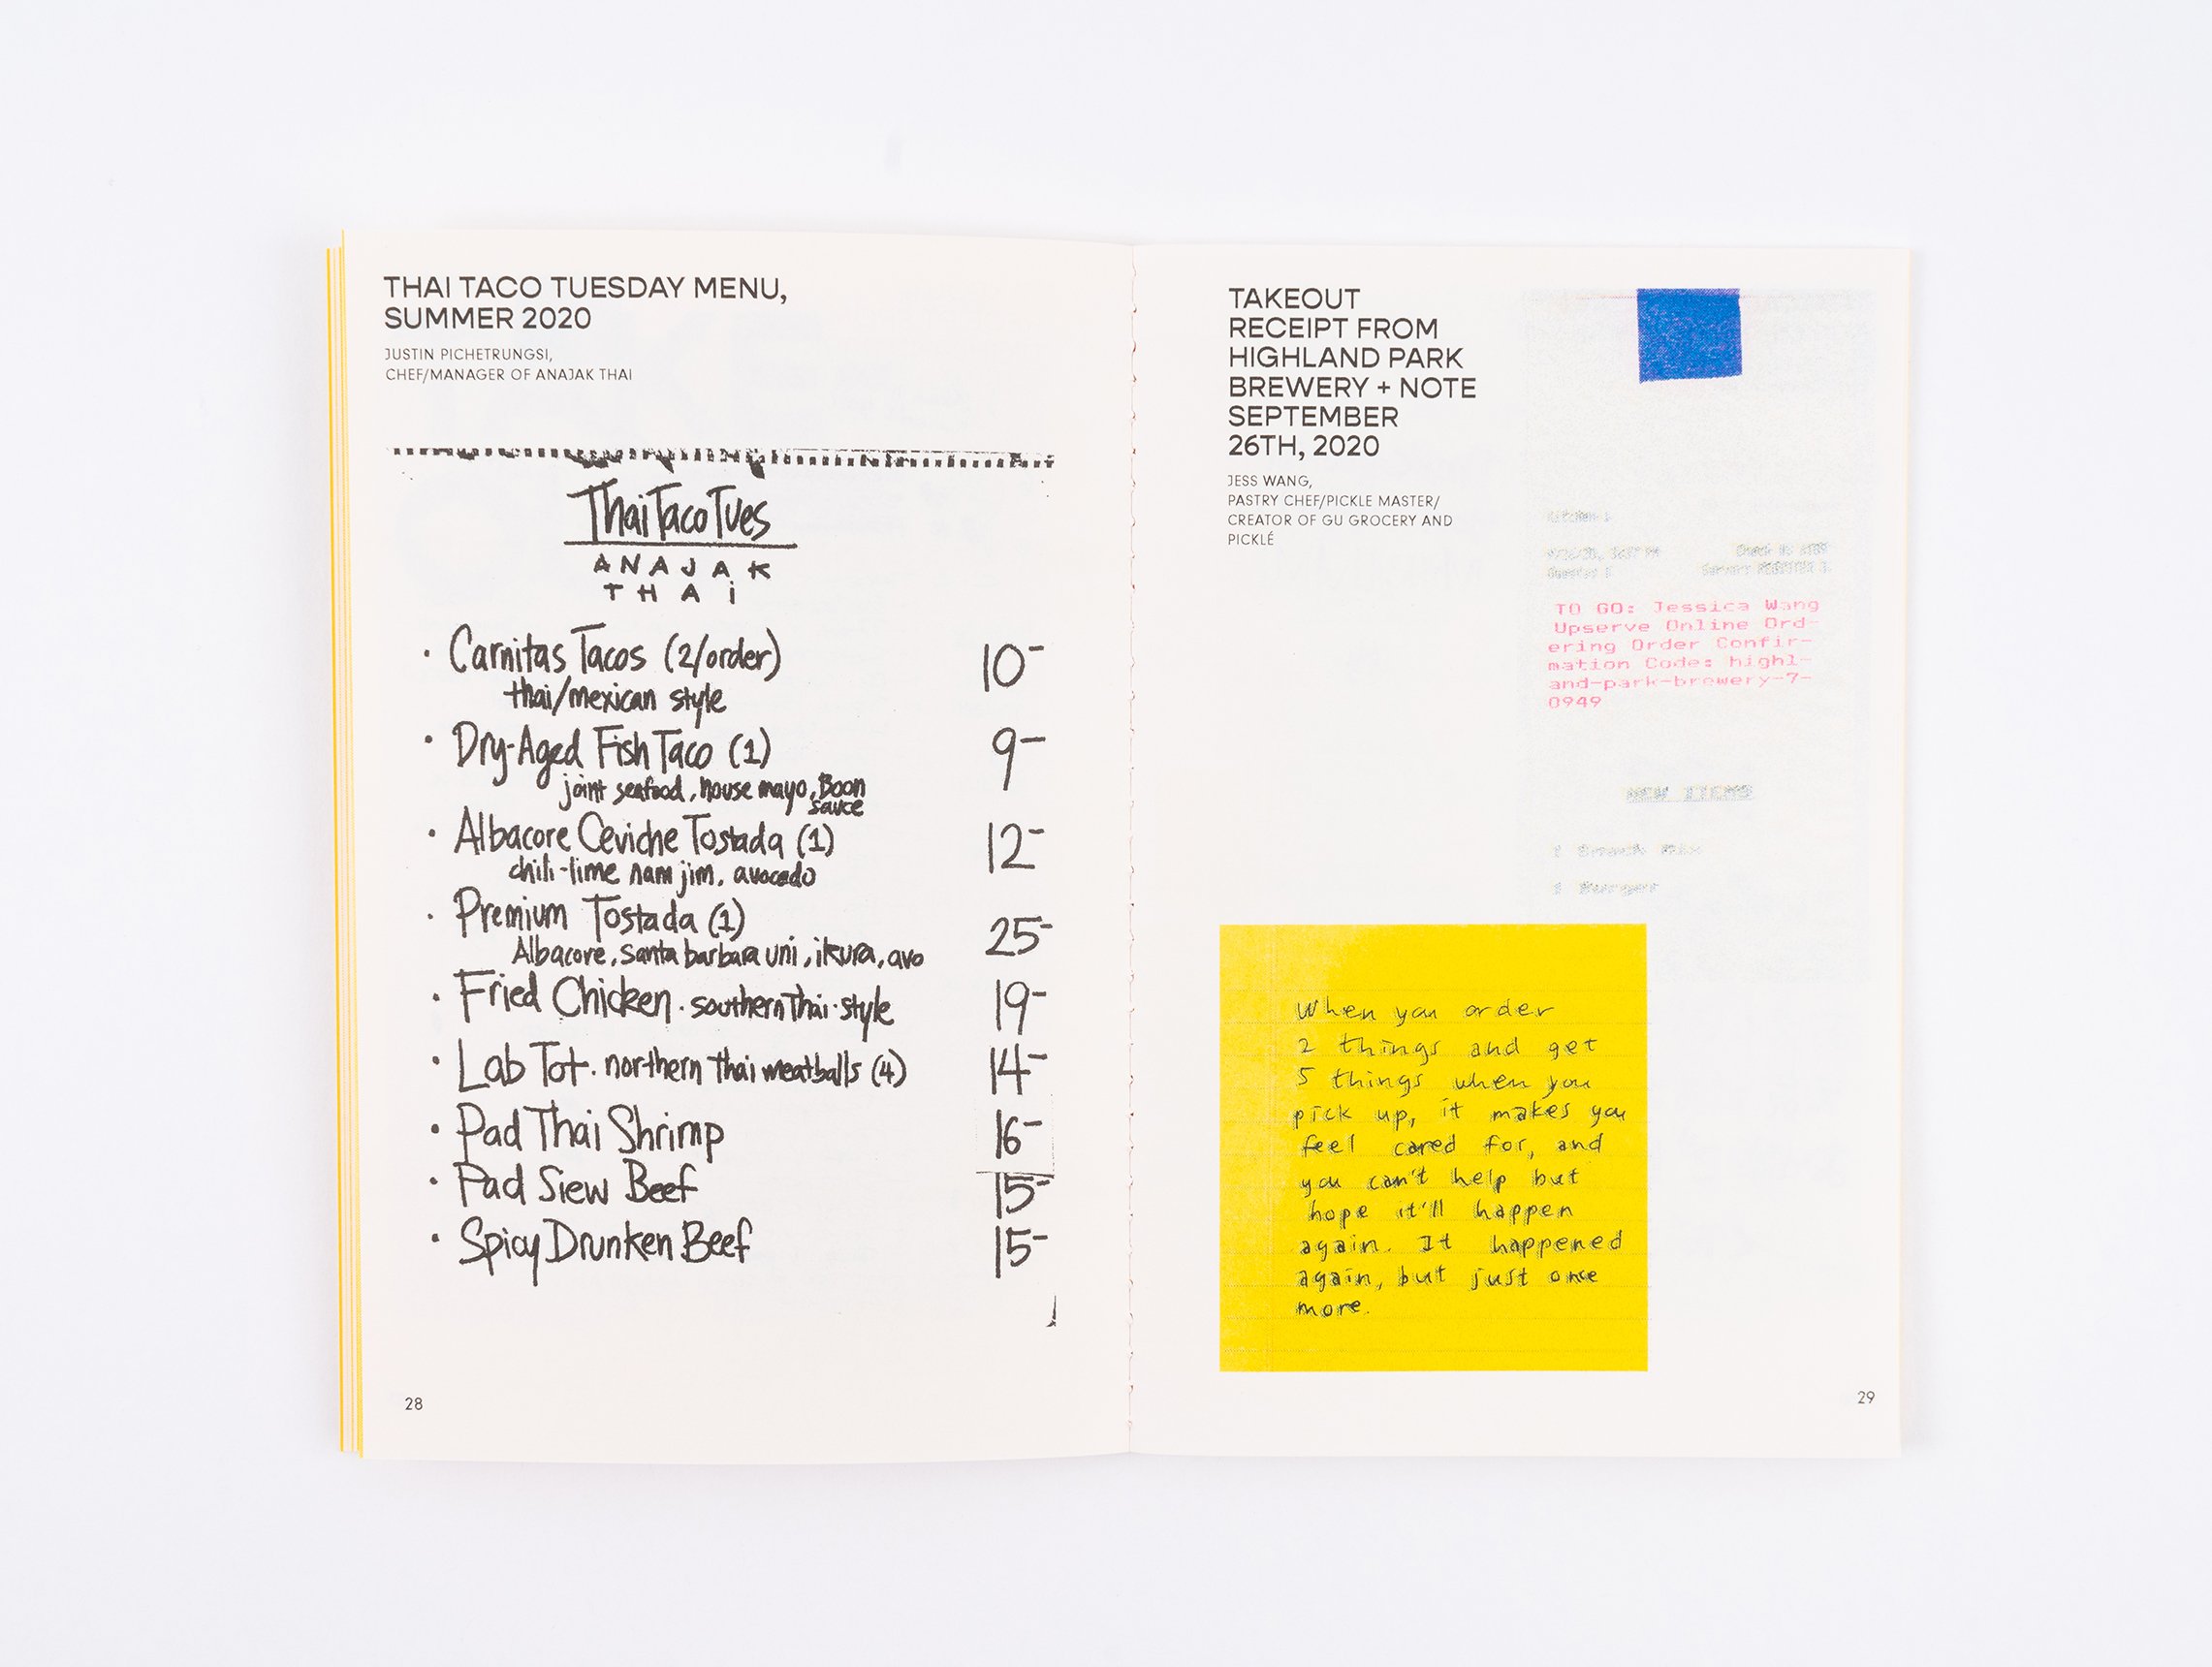 THAI TACO TUESDAY MENU,
SUMMER 2020
JUSTIN PICHETRUNGSI,
CHEF/MANAGER OF ANAJAK THAI
Thai Taco Tues
ANAJAK
THAi
· Carnitas Tacos (2/order) 10-
thai/mexican style
· Dry-Aged Fish Taco (1) 9-
joint seafood, house mayo, Boon
sauce
· Albacore Ceviche Tostada (1) 12-
chili-lime nam jim, avocado
· Premium Tostada (1) 25-
Albacore, santa barbara uni, ikura, avo
· Fried Chicken · southern Thai · style 19-
· Lab Tot · northern Thai meatballs (4) 14-
· Pad Thai Shrimp 16-
· Pad Siew Beef 15-
· Spicy Drunken Beef 15-
28
TAKEOUT
RECEIPT FROM
HIGHLAND PARK
BREWERY + NOTE
SEPTEMBER
26TH, 2020
JESS WANG,
PASTRY CHEF/PICKLE MASTER/
CREATOR OF GU GROCERY AND
PICKLÉ
TO GO: Jessica Wang
Upserve Online Ord-
ering Order Confir-
mation Code: highl-
and-park-brewery-7-
0949
NEW ITEMS
1 Snack Mix
1 Burger
When you order
2 things and get
5 things when you
pick up, it makes you
feel cared for, and
you can't help but
hope it'll happen
again. It happened
again, but just once
more.
29